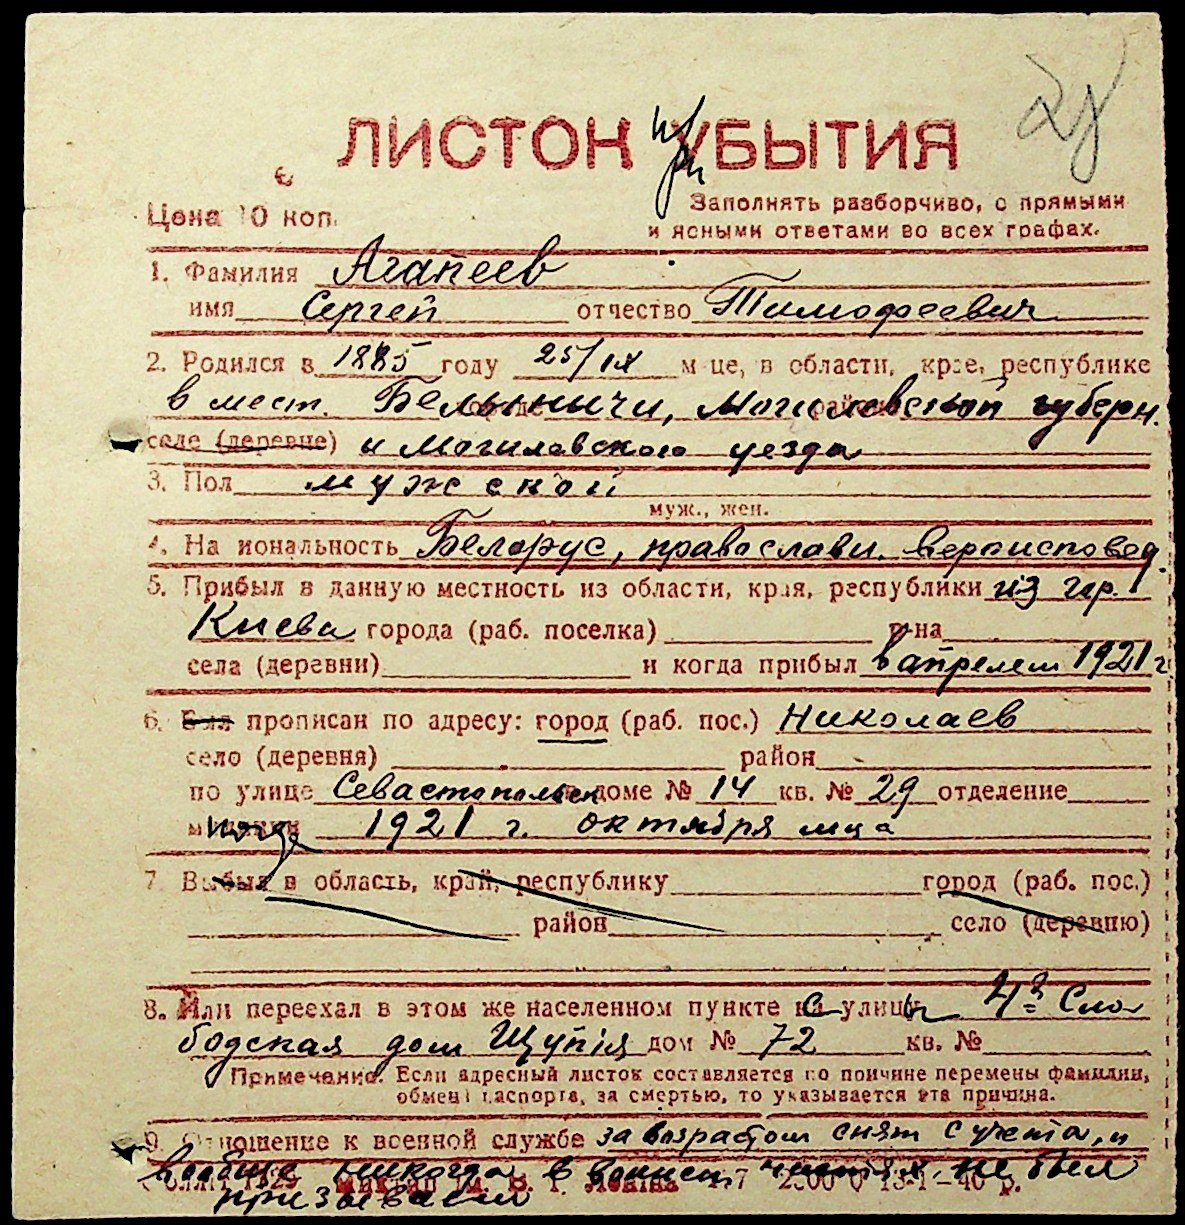 ЛИСТОК УБЫТИЯ
при
Цена 10 коп.
Заполнять разборчиво, с прямыми
и ясными ответами во всех графах.
1. Фамилия Агапеев
имя Сергей отчество Тимофеевич
2. Родился в 1885 году 25/IX м-це, в области, крае, республике
в мест. Белыничи, Могилевской губерн.
селе (деревне) и Могилевского уезда
3. Пол мужской
муж., жен.
4. Национальность Белорус, православн. вероисповед.
5. Прибыл в данную местность из области, края, республики из гор.
Киева города (раб. поселка) р-на
села (деревни) и когда прибыл в апреле м 1921 г
6. Был прописан по адресу: город (раб. пос.) Николаев
село (деревня) район
по улице Севастопольск доме № 14 кв. № 29 отделение
милиции 1921 г. октября м-ца
7. Выбыл в область, край, республику город (раб. пос.)
район село (деревню)
8. Или переехал в этом же населенном пункте с улицы 4я Сло
бодская дом Щупія дом № 72 кв. №
Примечание. Если адресный листок составляется по причине перемены фамилии,
обмена паспорта, за смертью, то указывается эта причина.
9. Отношение к военной службе за возрастом снят с учета, и
вообще никогда в воинск. частях не был
призываем